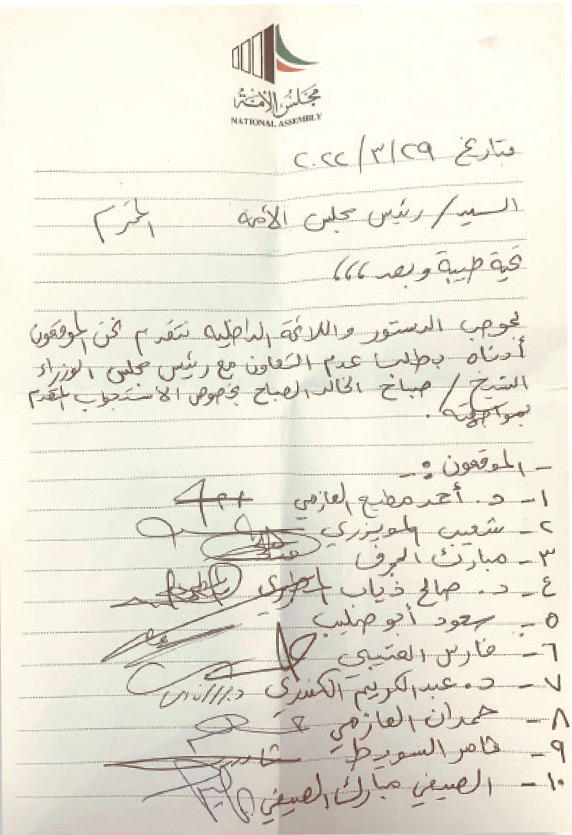 مجلس الأمة
NATIONAL ASSEMBLY
بتاريخ ٢٩/٣/٢٠٢٢
السيد/ رئيس مجلس الأمة المحترم
تحية طيبة وبعد،،،
بموجب الدستور واللائحة الداخلية نتقدم نحن الموقعون
أدناه بطلب عدم التعاون مع رئيس مجلس الوزراء
الشيخ/ صباح الخالد الصباح بخصوص الاستجواب المقدم
بمواجهته.
- الموقعون :-
١- د. أحمد مطيع العازمي
٢- شعيب المويزري
٣- مبارك الحجرف
٤- د. صالح ذياب المطيري
٥- سعود أبو صليب
٦- فارس العتيبي
٧- د. عبدالكريم الكندري
٨- حمدان العازمي
٩- ثامر السويط
١٠- الصيفي مبارك الصيفي